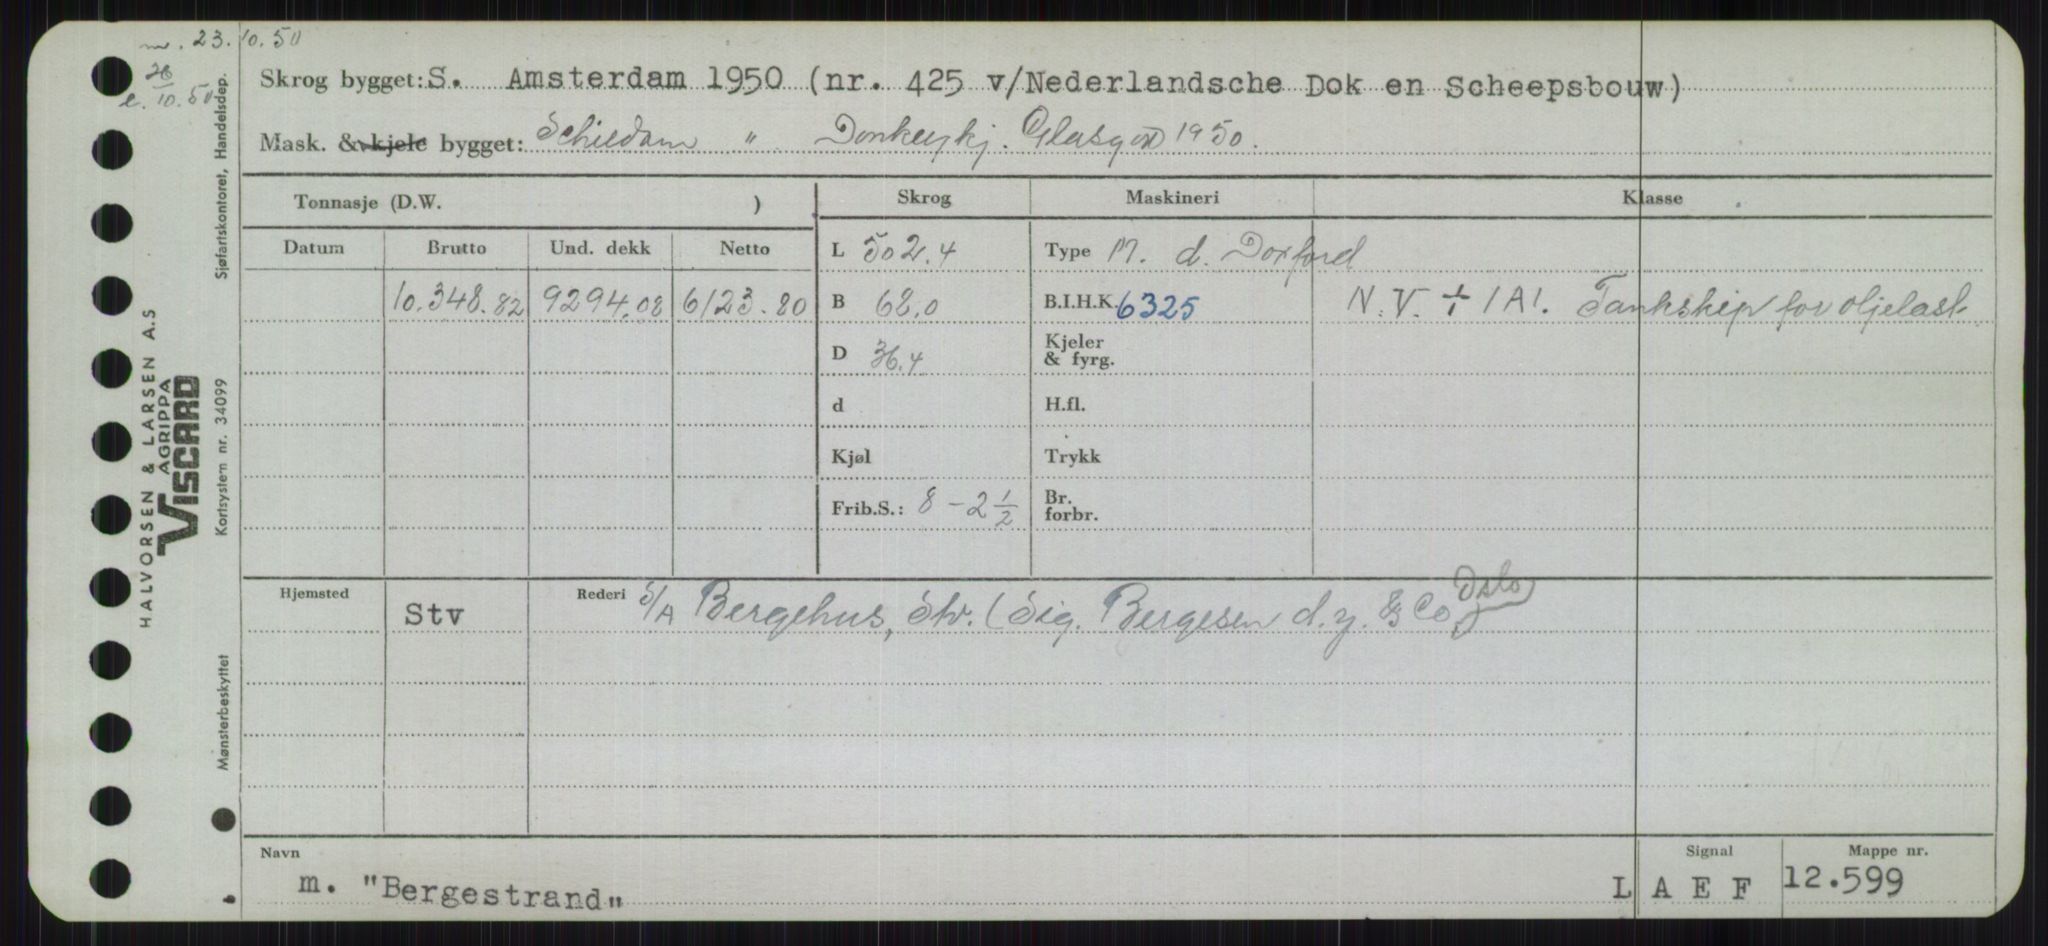 m. 23.10.50
28
e. 10.50
Skrog bygget: S. Amsterdam 1950 (nr. 425 v/Nederlandsche Dok en Scheepsbouw)
Mask. & kjele bygget: Schiedam " Donkeykj. Glasgow 1950.
Tonnasje (D.W. )
Skrog Maskineri Klasse
Datum Brutto Und. dekk Netto
L 502.4 Type M. d. Doxford
10.348.82 9294.08 6123.80 B 68.0 B.I.H.K. 6325 N.V. + 1A1. Tankskip for oljelast
D 36.4 Kjeler & fyrg.
d H.fl.
Kjøl Trykk
Frib.S.: 8 - 2 1/2 Br. forbr.
Hjemsted Stv Rederi S/A Bergehus, Stv. (Sig. Bergesen d.y. & Co. Oslo)
Navn Signal Mappe nr.
m. "Bergestrand" L A E F 12.599
Sjøfartskontoret, Handelsdep.
Kortsystem nr. 34099
Mønsterbeskyttet
HALVORSEN & LARSEN A.S
AGRIPPA
VISCARD